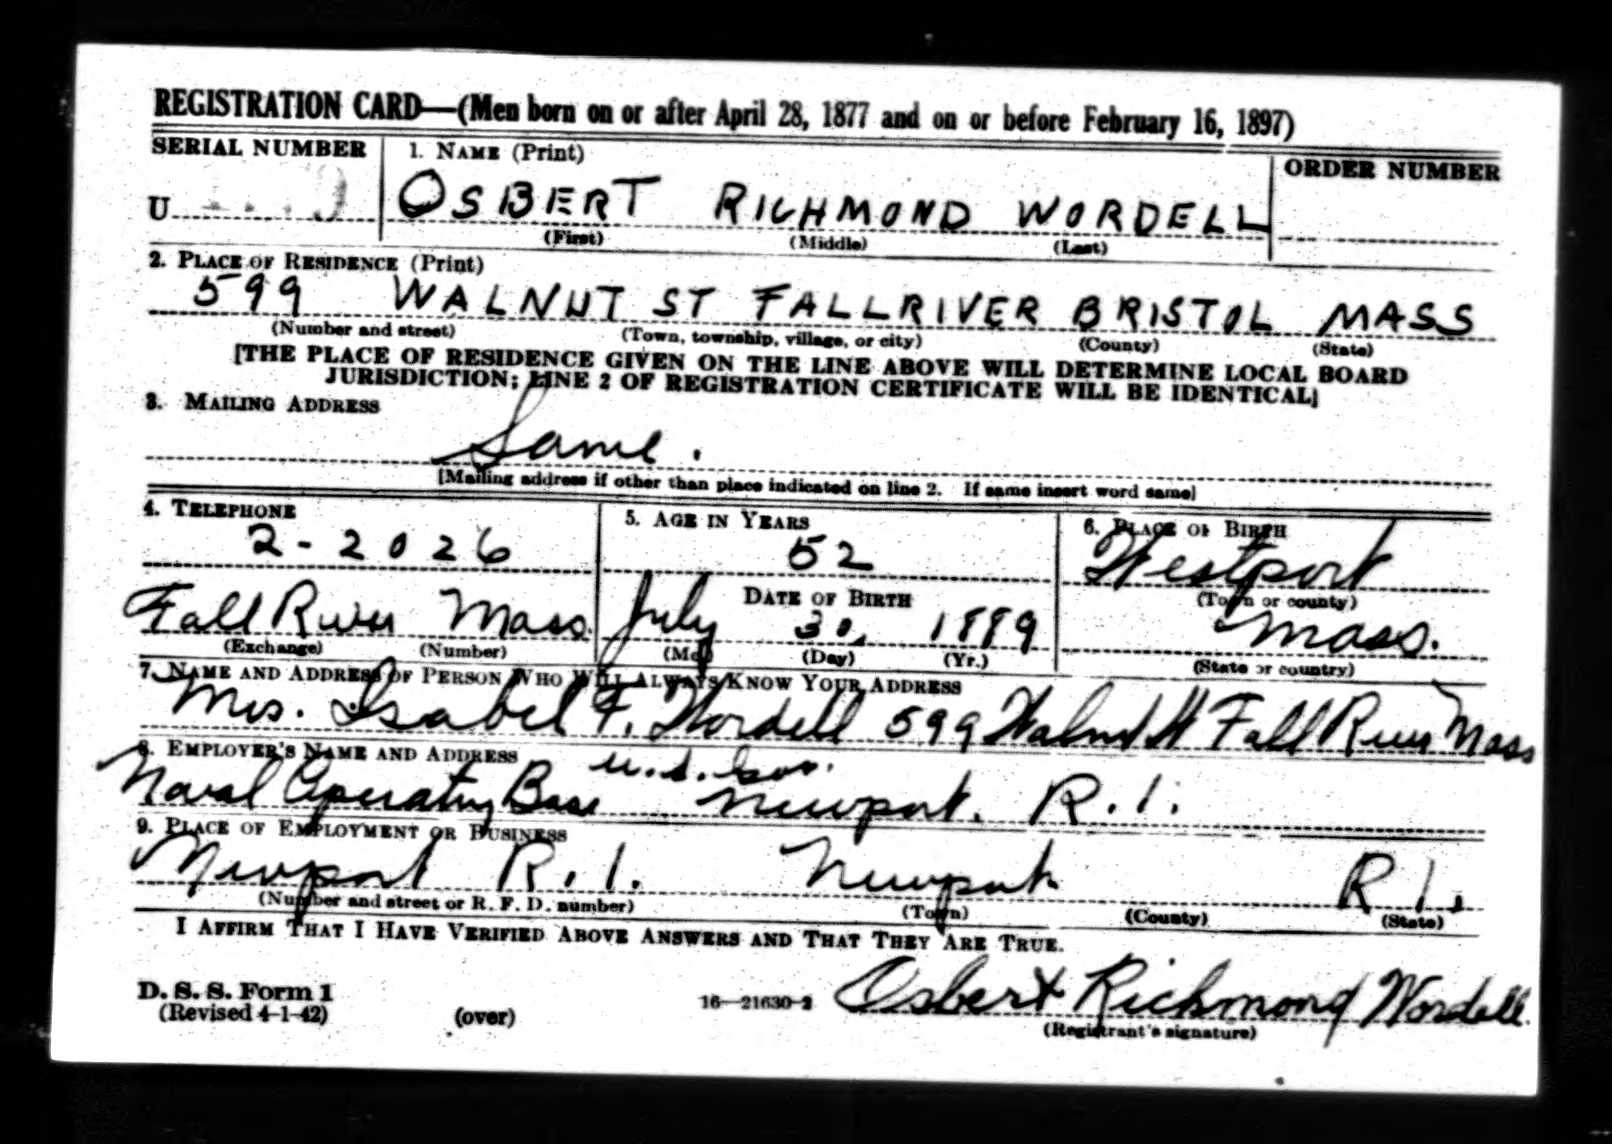 REGISTRATION CARD—(Men born on or after April 28, 1877 and on or before February 16, 1897)
SERIAL NUMBER 1. NAME (Print) ORDER NUMBER
U OSBERT RICHMOND WORDELL
(First) (Middle) (Last)
2. PLACE OF RESIDENCE (Print)
599 WALNUT ST FALLRIVER BRISTOL MASS
(Number and street) (Town, township, village, or city) (County) (State)
[THE PLACE OF RESIDENCE GIVEN ON THE LINE ABOVE WILL DETERMINE LOCAL BOARD
JURISDICTION; LINE 2 OF REGISTRATION CERTIFICATE WILL BE IDENTICAL]
3. MAILING ADDRESS
Same.
[Mailing address if other than place indicated on line 2. If same insert word same]
4. TELEPHONE 5. AGE IN YEARS 6. PLACE OF BIRTH
2-2026 52 Westport
DATE OF BIRTH (Town or county)
Fall River Mass. July 30, 1889 Mass.
(Exchange) (Number) (Mo.) (Day) (Yr.) (State or country)
7. NAME AND ADDRESS OF PERSON WHO WILL ALWAYS KNOW YOUR ADDRESS
Mrs. Isabel F. Wordell 599 Walnut St Fall River Mass
8. EMPLOYER'S NAME AND ADDRESS u.s. Gov.
Naval Operating Base Newport. R.I.
9. PLACE OF EMPLOYMENT OR BUSINESS
Newport R.I. Newport R.I.
(Number and street or R. F. D. number) (Town) (County) (State)
I AFFIRM THAT I HAVE VERIFIED ABOVE ANSWERS AND THAT THEY ARE TRUE.
D. S. S. Form 1
(Revised 4-1-42) (over) 16—21630-2 Osbert Richmond Wordell
(Registrant's signature)